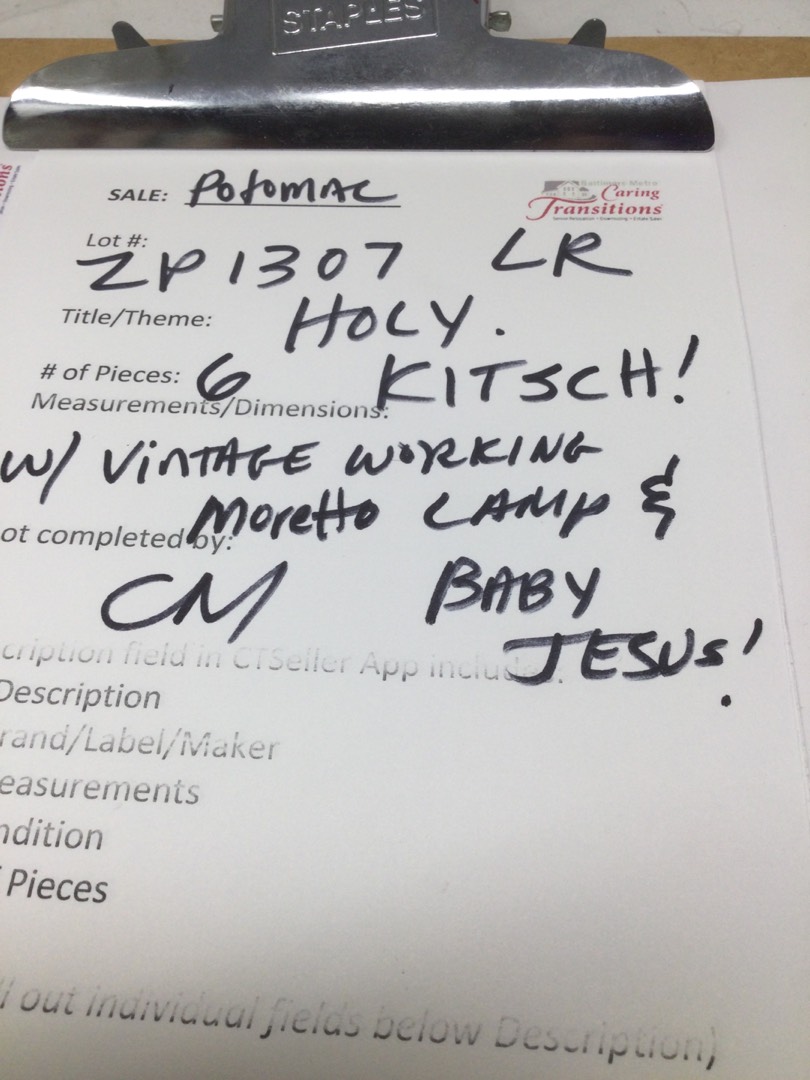 STAPLES
SALE: Potomac
Baltimore Metro
Caring
Transitions
Lot #:
ZP1307 LR
Title/Theme: HOLY.
# of Pieces: 6 KITSCH!
Measurements/Dimensions:
W/ VINTAGE WORKING
Moretto LAMP &
ot completed by:
CM BABY
JESUS!
cription field in CTSeller App includes:
Description
rand/Label/Maker
easurements
ndition
f Pieces
ll out individual fields below Description)